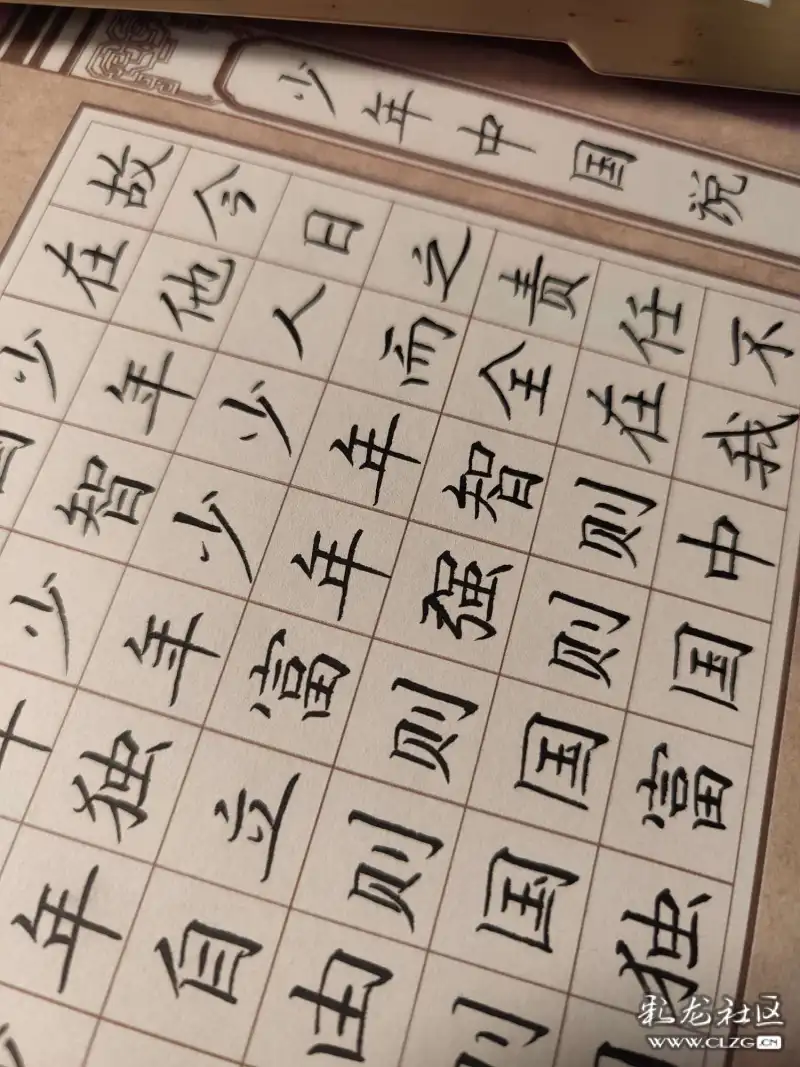 少年中国说
故今日之责任不
在他人而全在我
少年少年智则中
国智少年强则国
少年富则国富
年独立则国独
年自由则